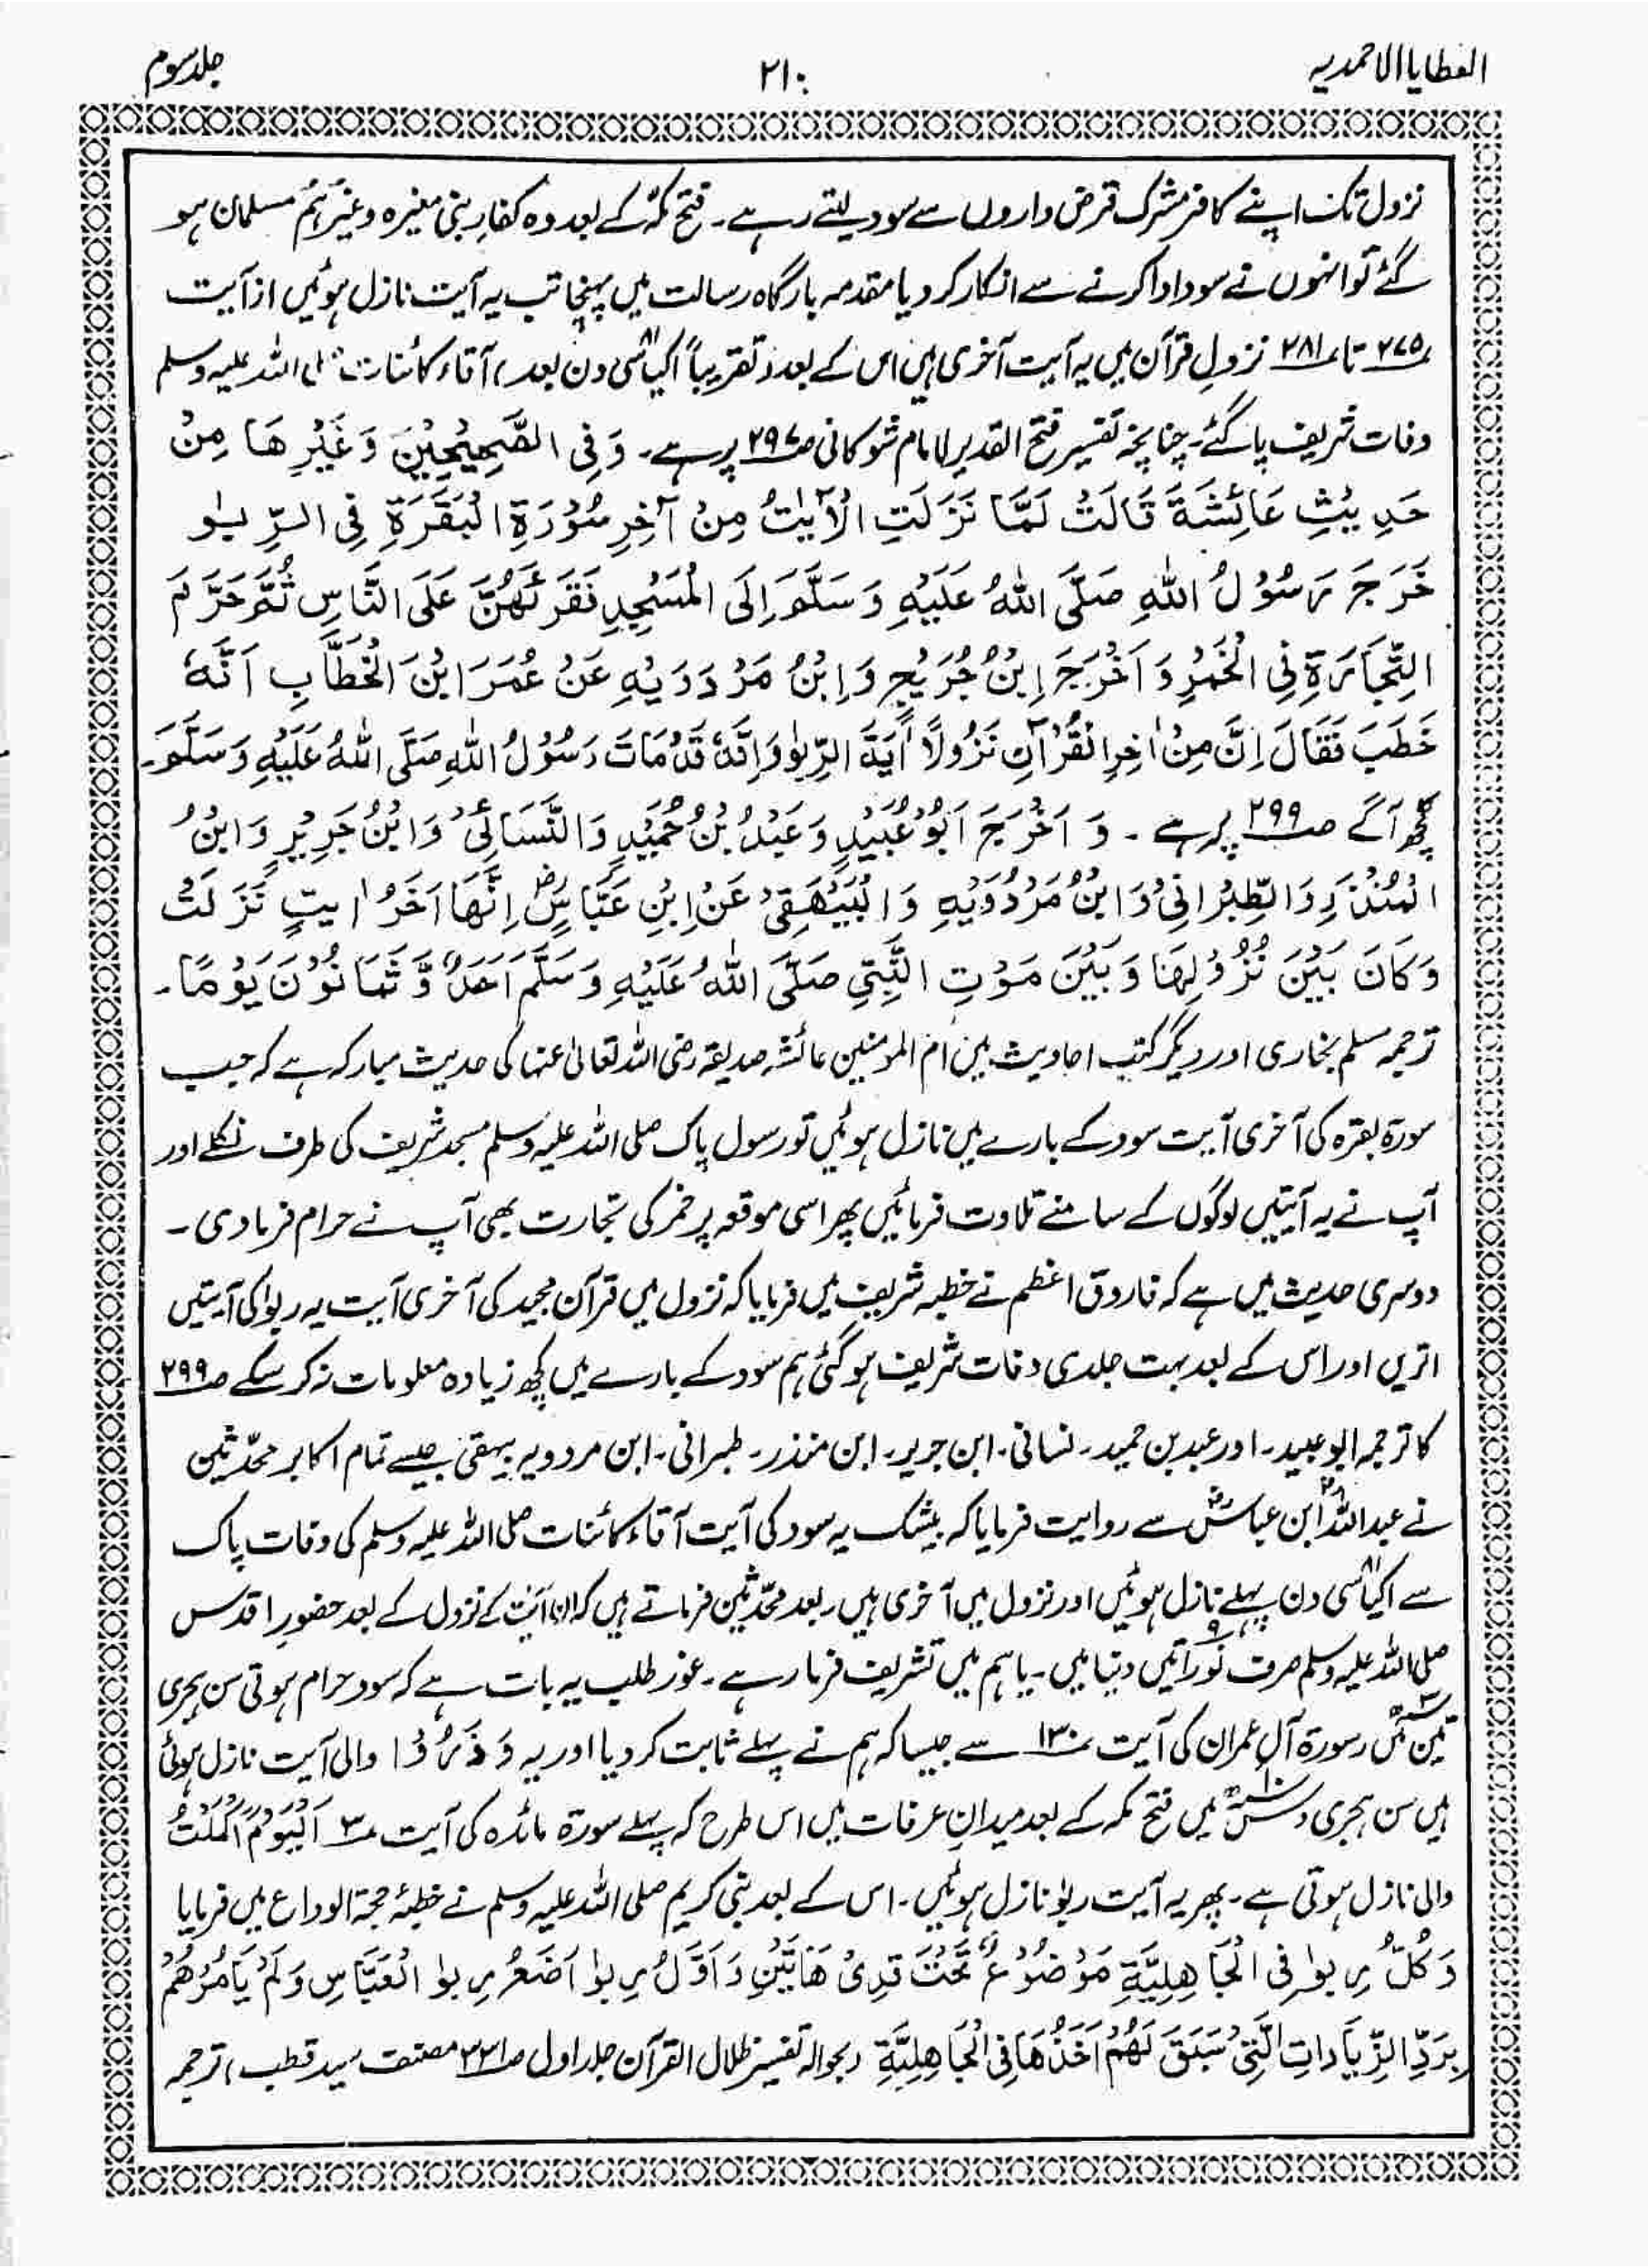 العطایا الاحمدیہ
۲۱۰
جلد سوم
نزول تک اپنے کافر مشرک قرض داروں سے سود لیتے رہے۔ فتح مکہ کے بعد وہ کفارِ بنی مغیرہ وغیرہُم مسلمان ہو
گئے تو انہوں نے سود ادا کرنے سے انکار کر دیا مقدمہ بارگاہ رسالت میں پہنچا تب یہ آیت نازل ہوئیں از آیت
۲۷۵ تا ۲۸۱ نزولِ قرآن میں یہ آیت آخری ہیں اس کے بعد (تقریباً اکیاسی ۸۱ دن بعد) آقاء کائنات صلی اللہ علیہ وسلم
وفات شریف پا گئے۔ چنانچہ تفسیر فتح القدیر لامام شوکانی صـ۲۹۷ پر ہے۔ وَفِی الصَّحِیْحِیْنَ وَغَیْرِھَا مِنْ
حَدِیْثِ عَائِشَۃَ قَالَتْ لَمَّا نَزَلَتِ الْآیٰتُ مِنْ آخِرِ سُوْرَۃِ الْبَقَرَۃِ فِی الرِّبٰو
خَرَجَ رَسُوْلُ اللّٰہِ صَلَّی اللّٰہُ عَلَیْہِ وَسَلَّمَ اِلَی الْمَسْجِدِ فَقَرَئَھُنَّ عَلَی النَّاسِ ثُمَّ حَرَّمَ
التِّجَارَۃِ فِی الْخَمْرِ وَاَخْرَجَ اِبْنُ جُرَیْجٍ وَاِبْنُ مَرْدَوَیْہِ عَنْ عُمَرَ ابْنَ الْخَطَّابِ اَنَّہٗ
خَطَبَ فَقَالَ اِنَّ مِنْ اٰخِرِ الْقُرْآنِ نَزُوْلًا اٰیَۃَ الرِّبٰو وَاِنَّہٗ قَدْ مَاتَ رَسُوْلُ اللّٰہِ صَلَّی اللّٰہُ عَلَیْہِ وَسَلَّمَ۔
کچھ آگے صـ۲۹۹ پر ہے۔ وَ اَخْرَجَ اَبُوْ عُبَیْدٍ وَعَبْدُ بْنُ حُمَیْدٍ وَالنَّسَائِیُّ وَابْنُ جَرِیْرٍ وَابْنُ
الْمُنْذَرِ وَالطِّبْرَانِیْ وَابْنُ مَرْدُوَیْہِ وَالْبَیْھَقِیْ عَنْ اِبْنِ عَبَّاسٍؓ اِنَّھَا اٰخَرُ اٰیتٍ نَزَلَتْ
وَکَانَ بَیْنَ نُزُوْلِھَا وَبَیْنَ مَوْتِ النَّبِیِّ صَلَّی اللّٰہُ عَلَیْہِ وَسَلَّمَ اَحَدٌ وَّ ثَمَانُوْنَ یَوْمًا۔
ترجمہ مسلم بخاری اور دیگر کتب احادیث میں ام المومنین عائشہ صدیقہ رضی اللہ تعالیٰ عنہا کی حدیث مبارکہ ہے کہ جب
سورۃ بقرہ کی آخری آیت سود کے بارے میں نازل ہوئیں تو رسول پاک صلی اللہ علیہ وسلم مسجد شریف کی طرف نکلے اور
آپ نے یہ آیتیں لوگوں کے سامنے تلاوت فرمائیں پھر اسی موقعہ پر خمر کی تجارت بھی آپ نے حرام فرما دی۔
دوسری حدیث میں ہے کہ فاروق اعظم نے خطبہ شریف میں فرمایا کہ نزول میں قرآن مجید کی آخری آیت یہ ربوٰ کی آیتیں
اتریں اور اس کے بعد بہت جلدی وفات شریف ہو گئی ہم سود کے بارے میں کچھ زیادہ معلومات نہ کر سکے صـ۲۹۹
کا ترجمہ ابو عبید۔ اور عبد بن حمید۔ نسائی۔ ابن جریر۔ ابن منذر۔ طبرانی۔ ابن مردویہ بیہقی جیسے تمام اکابر محدّثین
نے عبد اللہ ابن عباسؓ سے روایت فرمایا کہ بیشک یہ سود کی آیت آقاء کائنات صلی اللہ علیہ وسلم کی وفات پاک
سے اکیاسی ۸۱ دن پہلے نازل ہوئیں اور نزول میں آخری ہیں۔ بعد محدّثین فرماتے ہیں کہ ان آیت کے نزول کے بعد حضورِ اقدس
صلی اللہ علیہ وسلم صرف نو ۹ راتیں دنیا میں۔ یا ہم میں تشریف فرما رہے۔ غور طلب یہ بات ہے کہ سود حرام ہوتی سن ہجری
تین ۳ میں سورۃ آلِ عمران کی آیت ۱۳۰ سے جیسا کہ ہم نے پہلے ثابت کر دیا اور یہ وَذَرُوْا والی آیت نازل ہوئی
ہیں سن ہجری دس ۱۰ میں فتح مکہ کے بعد میدانِ عرفات میں اس طرح کہ پہلے سورۃ مائدہ کی آیت ۳ اَلْیَوْمَ اَکْمَلْتُ
والی نازل ہوتی ہے۔ پھر یہ آیت ربوٰ نازل ہوئیں۔ اس کے بعد نبی کریم صلی اللہ علیہ وسلم نے خطبۂ حجۃ الوداع میں فرمایا
وَکُلُّ رِبوٰ فِی الْجَاھِلِیَّۃِ مَوْضُوْعٌ تَحْتَ قَدِیْ ھَاتَیْنِ وَاَوَّلُ رِبوٰ اَضَعُ رِبوٰ الْعَبَّاسِ وَلَمْ یَامُرْھُمْ
بِرَدِّ الزِّیَادَاتِ الَّتِیْ سَبَقَ لَھُمْ اَخَذُھَا فِی الْجَاھِلِیَّۃِ (بحوالہ تفسیر ظلال القرآن جلد اول صـ۲۲۱ مصنف سید قطب) ترجمہ